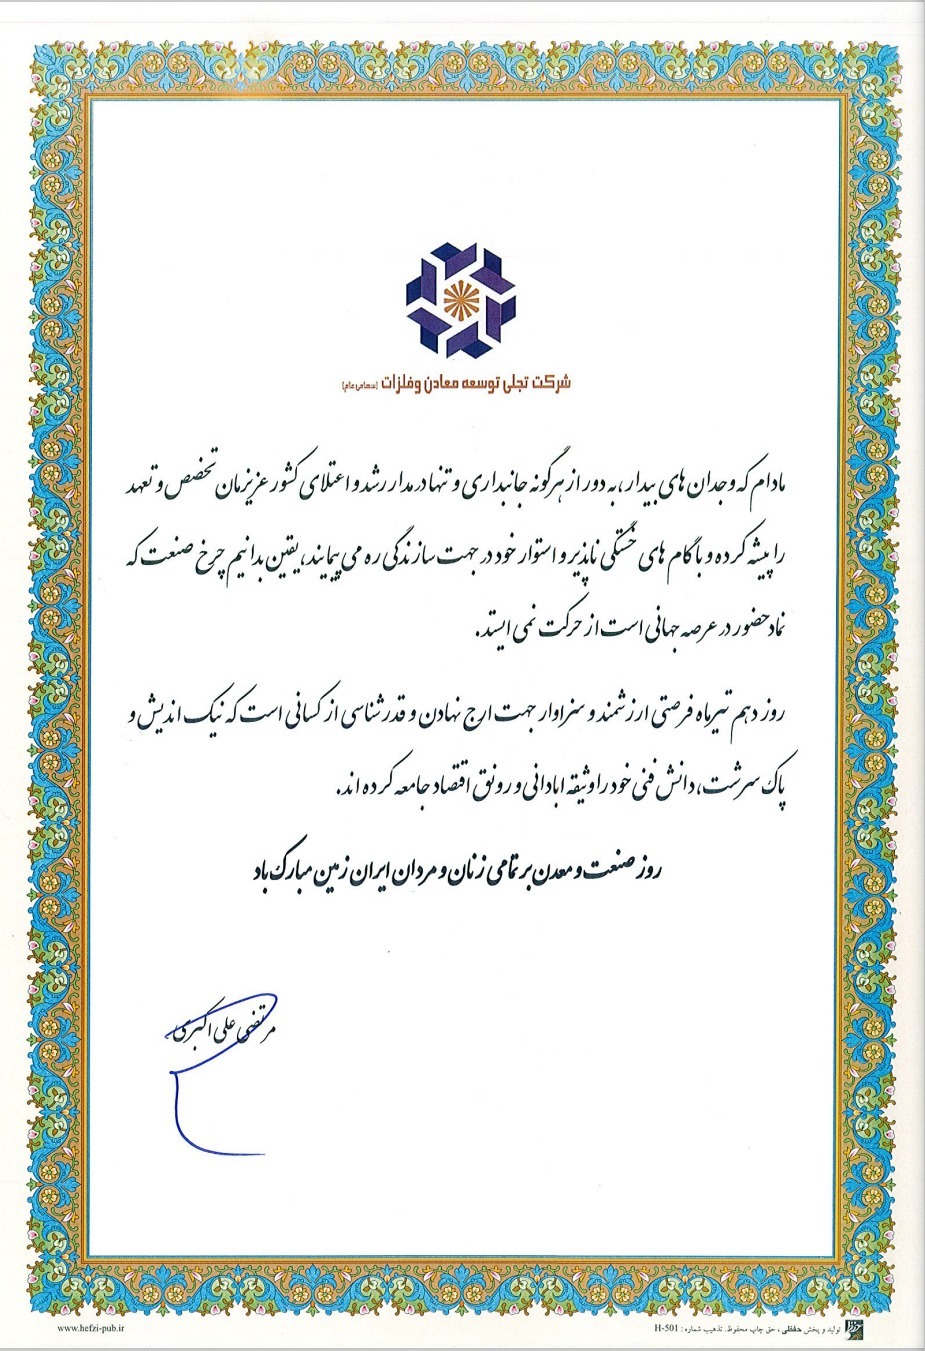 شرکت تجلی توسعه معادن و فلزات (سهامی عام)
مادام که وجدان های بیدار، به دور از هرگونه جانبداری و تنها در مدار رشد و اعتلای کشور عزیزمان تخصص و تعهد
را پیشه کرده و با گام های خستگی ناپذیر و استوار خود در جهت سازندگی ره می پیمایند، یقین بدانیم چرخ صنعت که
نماد حضور در عرصه جهانی است از حرکت نمی ایستد.
روز دهم تیرماه فرصتی ارزشمند و سزاوار جهت ارج نهادن و قدرشناسی از کسانی است که نیک اندیش و
پاک سرشت، دانش فنی خود را وثیقه ابادانی و رونق اقتصاد جامعه کرده اند.
روز صنعت و معدن بر تمامی زنان و مردان ایران زمین مبارک باد
مرتضی علی اکبری
تولید و پخش حفظی ، حق چاپ محفوظ. تذهیب شماره : H-501
www.hefzi-pub.ir